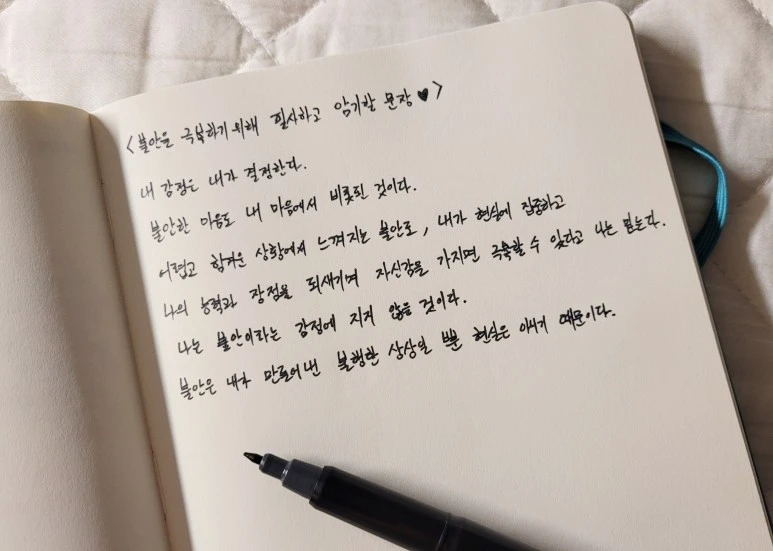 <불안을 극복하기 위해 필사하고 암기할 문장♥>
내 감정은 내가 결정한다.
불안한 마음도 내 마음에서 비롯된 것이다.
어렵고 힘겨운 상황에서 느껴지는 불안도, 내가 현실에 집중하고
나의 능력과 장점을 되새기며 자신감을 가지면 극복할 수 있다고 나는 믿는다.
나는 불안이라는 감정에 지지 않을 것이다.
불안은 내가 만들어낸 불행한 상상일 뿐 현실은 아니기 때문이다.